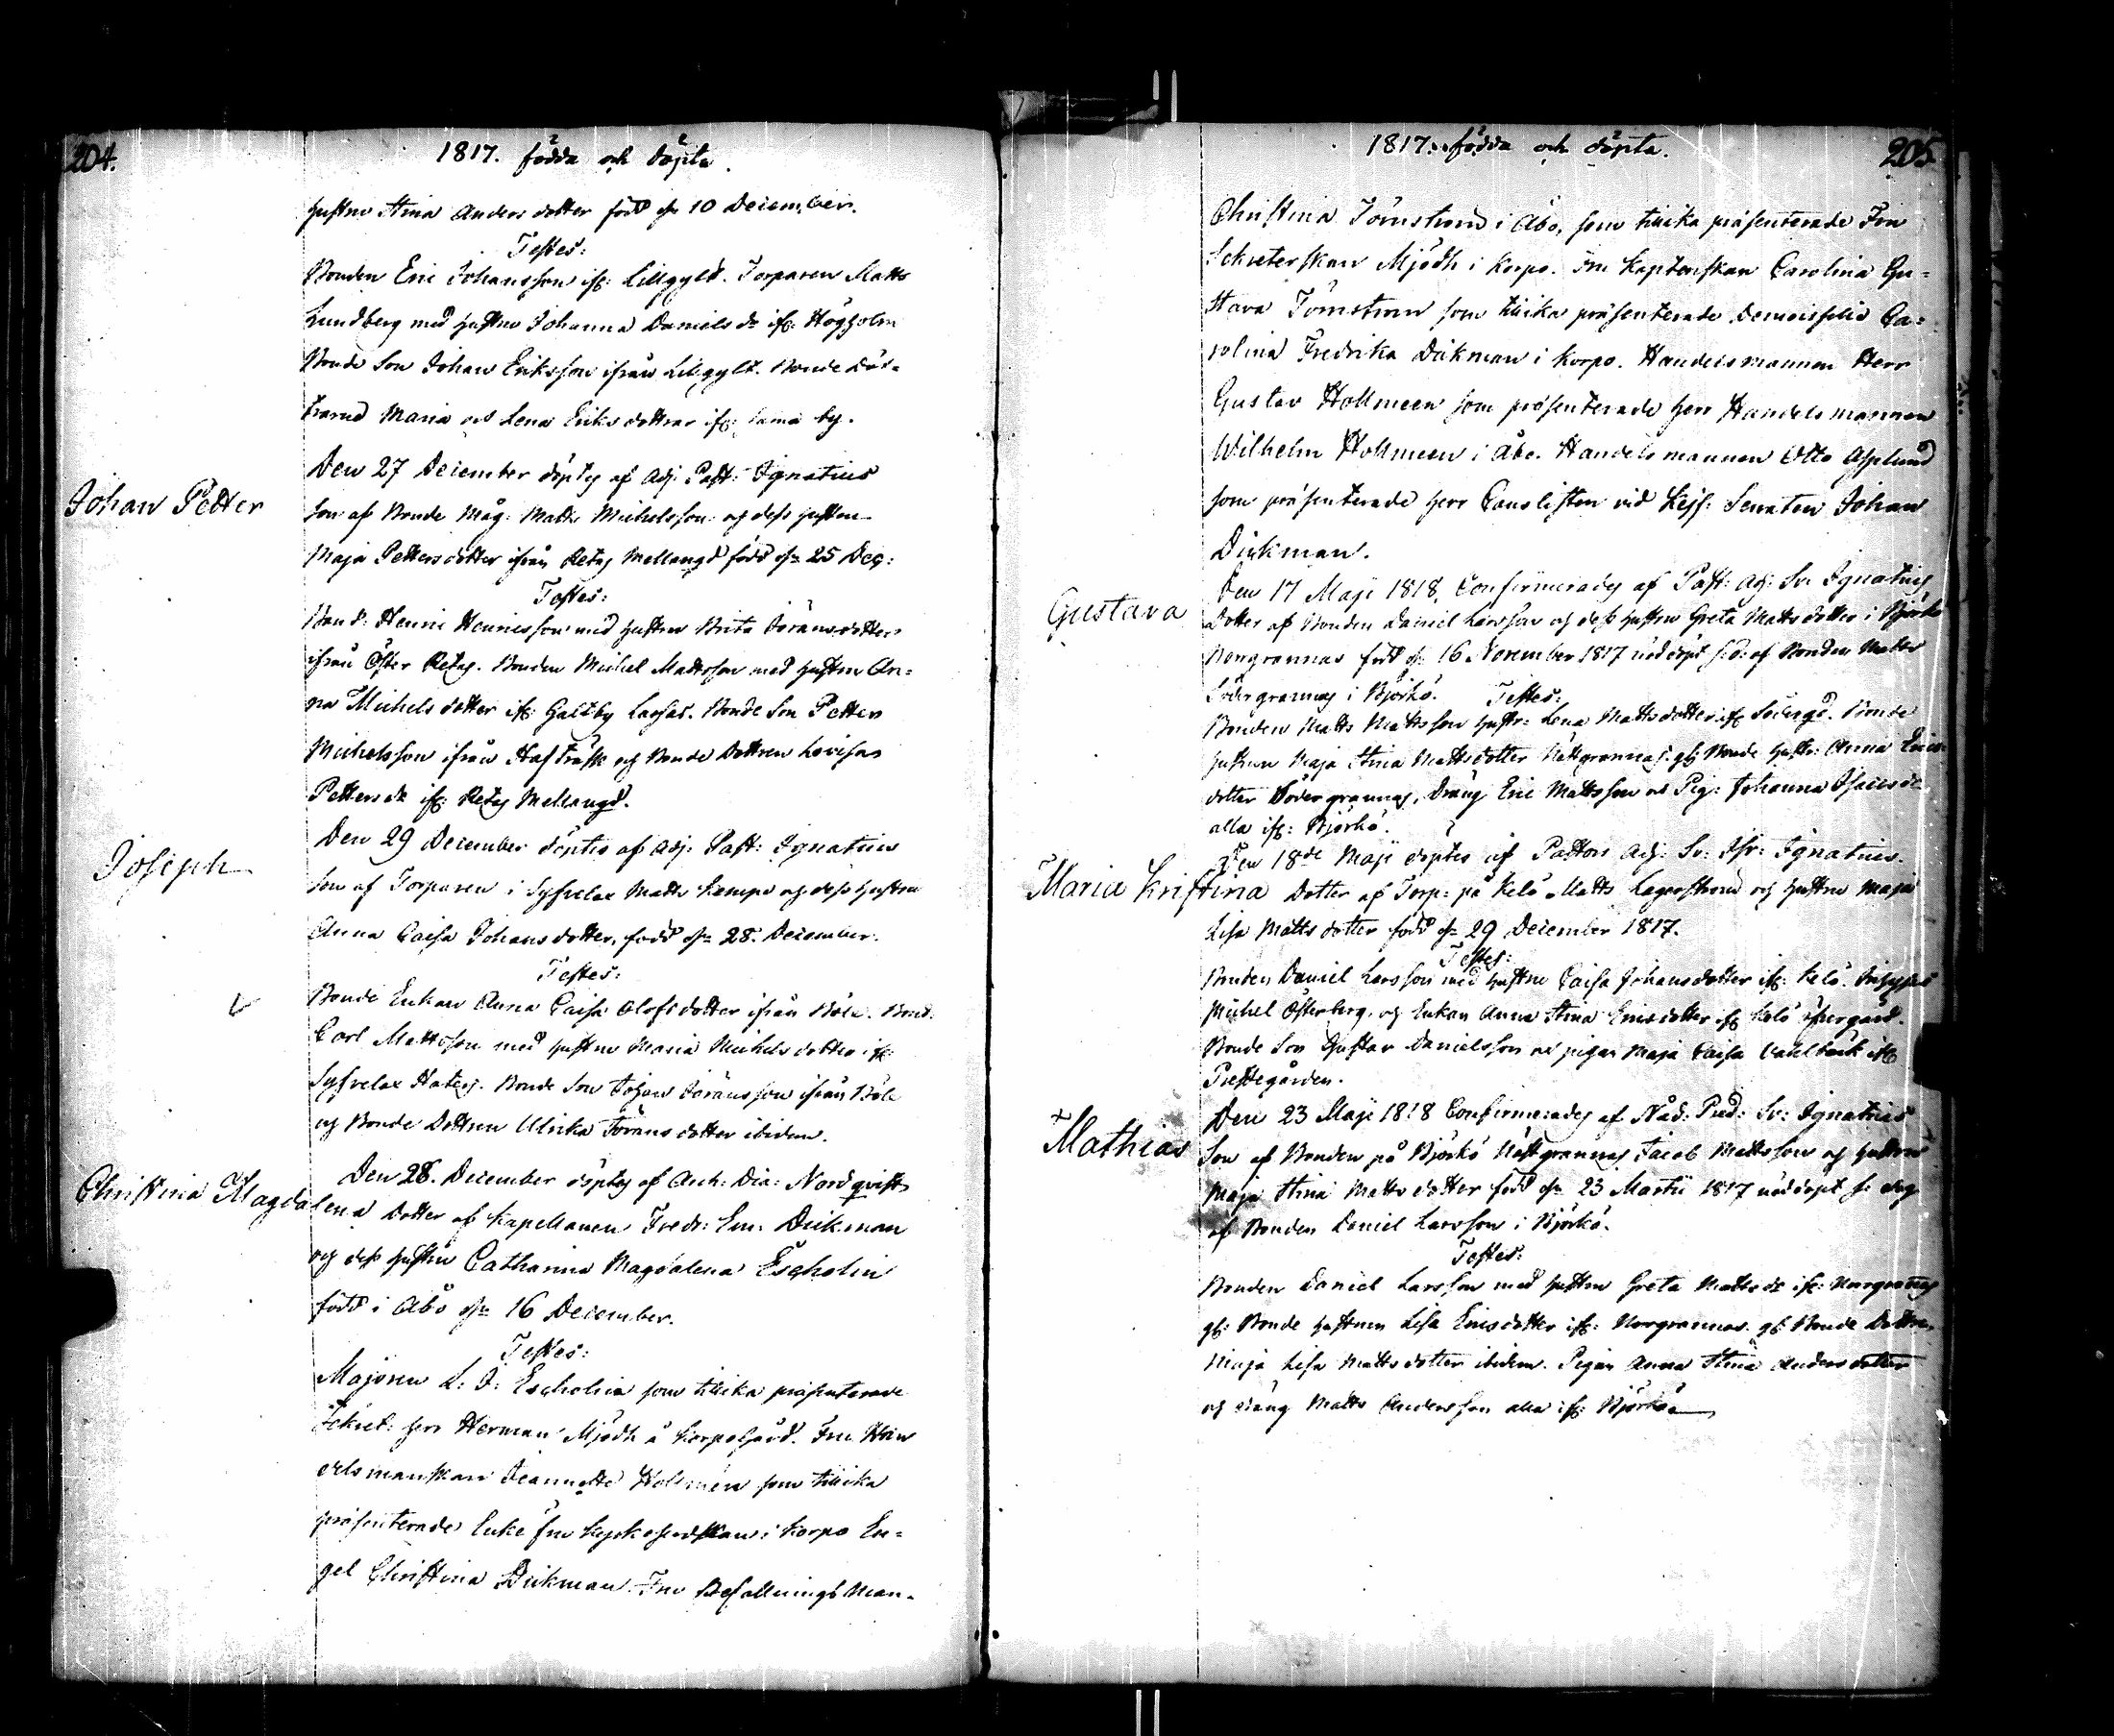 204.
1817. födda och döpta.
hustru Stina Andersdotter född d. 10 December.
Testes:
Bonden Eric Johansson ifr: Lillgyltö. Torparen Matts
Lundberg med hustru Johanna Daniels dr ifr: Högholm
Bonde Son Johan Eriksson ifrån Lillgyltö. Bonde Döt-
trarna Maria och Lena Eriks döttrar ifr: samma by.
Johan Petter
Den 27 December döptes af Adj: Past: Ignatius
Son af Bonde Måg: Matts Michelsson och dess hustru
Maja Pettersdotter ifrån Retais Mellangd född d. 25 Dec:
Testes:
Bond: Henric Henricsson med hustru Brita Göransdotter
ifrån Öster Retais. Bonden Michel Mattsson med hustru An-
na Michelsdotter ifr: Galtby Lassas. Bonde Son Petter
Michelsson ifrån Hafträsk och Bonde Dottren Lovisa
Petters dr ifr: Retais Mellangd.
Joseph
Den 29 December döptes af Adj: Past: Ignatius
Son af Torparen i Syfvelax Matts Kempe och dess hustru
Anna Caisa Johansdotter, född d. 28. December.
Testes:
Bonde Enkan Anna Caisa Olofsdotter ifrån Böle. Bond:
Carl Mattsson med hustru Maria Michelsdotter ifr:
Syfvelax. Bonde Son Johan Göransson ifrån Böle
och Bonde Dottren Ulrika Göransdotter ibidem.
Christina Magdalena
Den 28. December döptes af Arch: Dia: Nordqvist
Dotter af Kapellanen Fredr: Em: Dickman
och dess hustru Catharina Magdalena Escholin
född i Åbo d. 16 December.
Testes:
Majoren L: J: Escholin som tillika præsenterade
Sekret: herr Herman Mjödh å Korpogård. Fru Han
delsmanskan Jeannette Hollmén som tillika
præsenterade Enke fru Kyrkoherdskan i Korpo En-
gel Christina Dickman. Fru Befallningsman-
1817. födda och döpta.
205
Christina Törnström i Åbo, som tillika præsenterade Fru
Sekreterskan Mjödh i Korpo. Fru Kaptenskan Carolina Gu-
stava Törnstrom som tillika præsenterade Demoiselle Ca-
rolina Fredrika Dickman i Korpo. Handelsmannen Herr
Gustav Hollmeen som præsenterade herr Handelsmannen
Wilhelm Hollmeen i Åbo. Handelsmannen Otto Asplund
som præsenterade herr Canslisten vid Kejs: Senaten Johan
Dickman.
Gustava
Den 17 Maji 1818, Confirmerades af Past: Adj: Sv: Ignatius
Dotter af Bonden Daniel Larsson och dess hustru Greta Mattsdotter i Björkö
Norgrannas född d. 16 November 1817 nöddöpt s: d: af Bonden Matts
Södergrannas i Björkö. Testes:
Bonden Matts Mattsson hustr: Lena Mattsdotter ifr: Södergd. Bonde
hustrun Maja Stina Mattsdotter Nättgrannas. gl: Bonde hustr: Anna Erics
dotter Södergrannas, Dräng Eric Mattsson och Pig: Johanna Isacs dr
alla ifr: Björkö.
Maria Kristina
Den 18de Maji döptes af Pastors Adj: Sv: Isr: Ignatius
Dotter af Torp: på Kelö Matts Lagerström och hustru Maja
Lisa Mattsdotter född d. 29 December 1817.
Testes:
Bonden Daniel Larsson med hustru Caisa Johansdotter ifr: Kelö.
Michel Österberg, och Enkan Anna Stina Ericsdotter ifr: Kelö Östergård.
Bonde Son Gustav Danielsson och pigan Maja Caisa ifr:
Prestegården.
Mathias
Den 23 Maji 1818 Confirmerades af Nåd: Pred: Sv: Ignatius
Son af Bonden på Björkö Nättgrannas Jacob Mattsson och hustru
Maja Stina Mattsdotter född d. 23 Martii 1817 nöddöpt s: dag
af Bonden Daniel Larsson i Björkö.
Testes:
Bonden Daniel Larsson med hustru Greta Matts dr ifr: Norgrannas
gl: Bonde hustrun Lisa Ericsdotter ifr: Norgrannas. gl: Bonde Dottren
Maja Lisa Mattsdotter ibidem. Pigan Anna Stina Andersdotter
och dräng Matts Andersson alla ifr: Björkö.